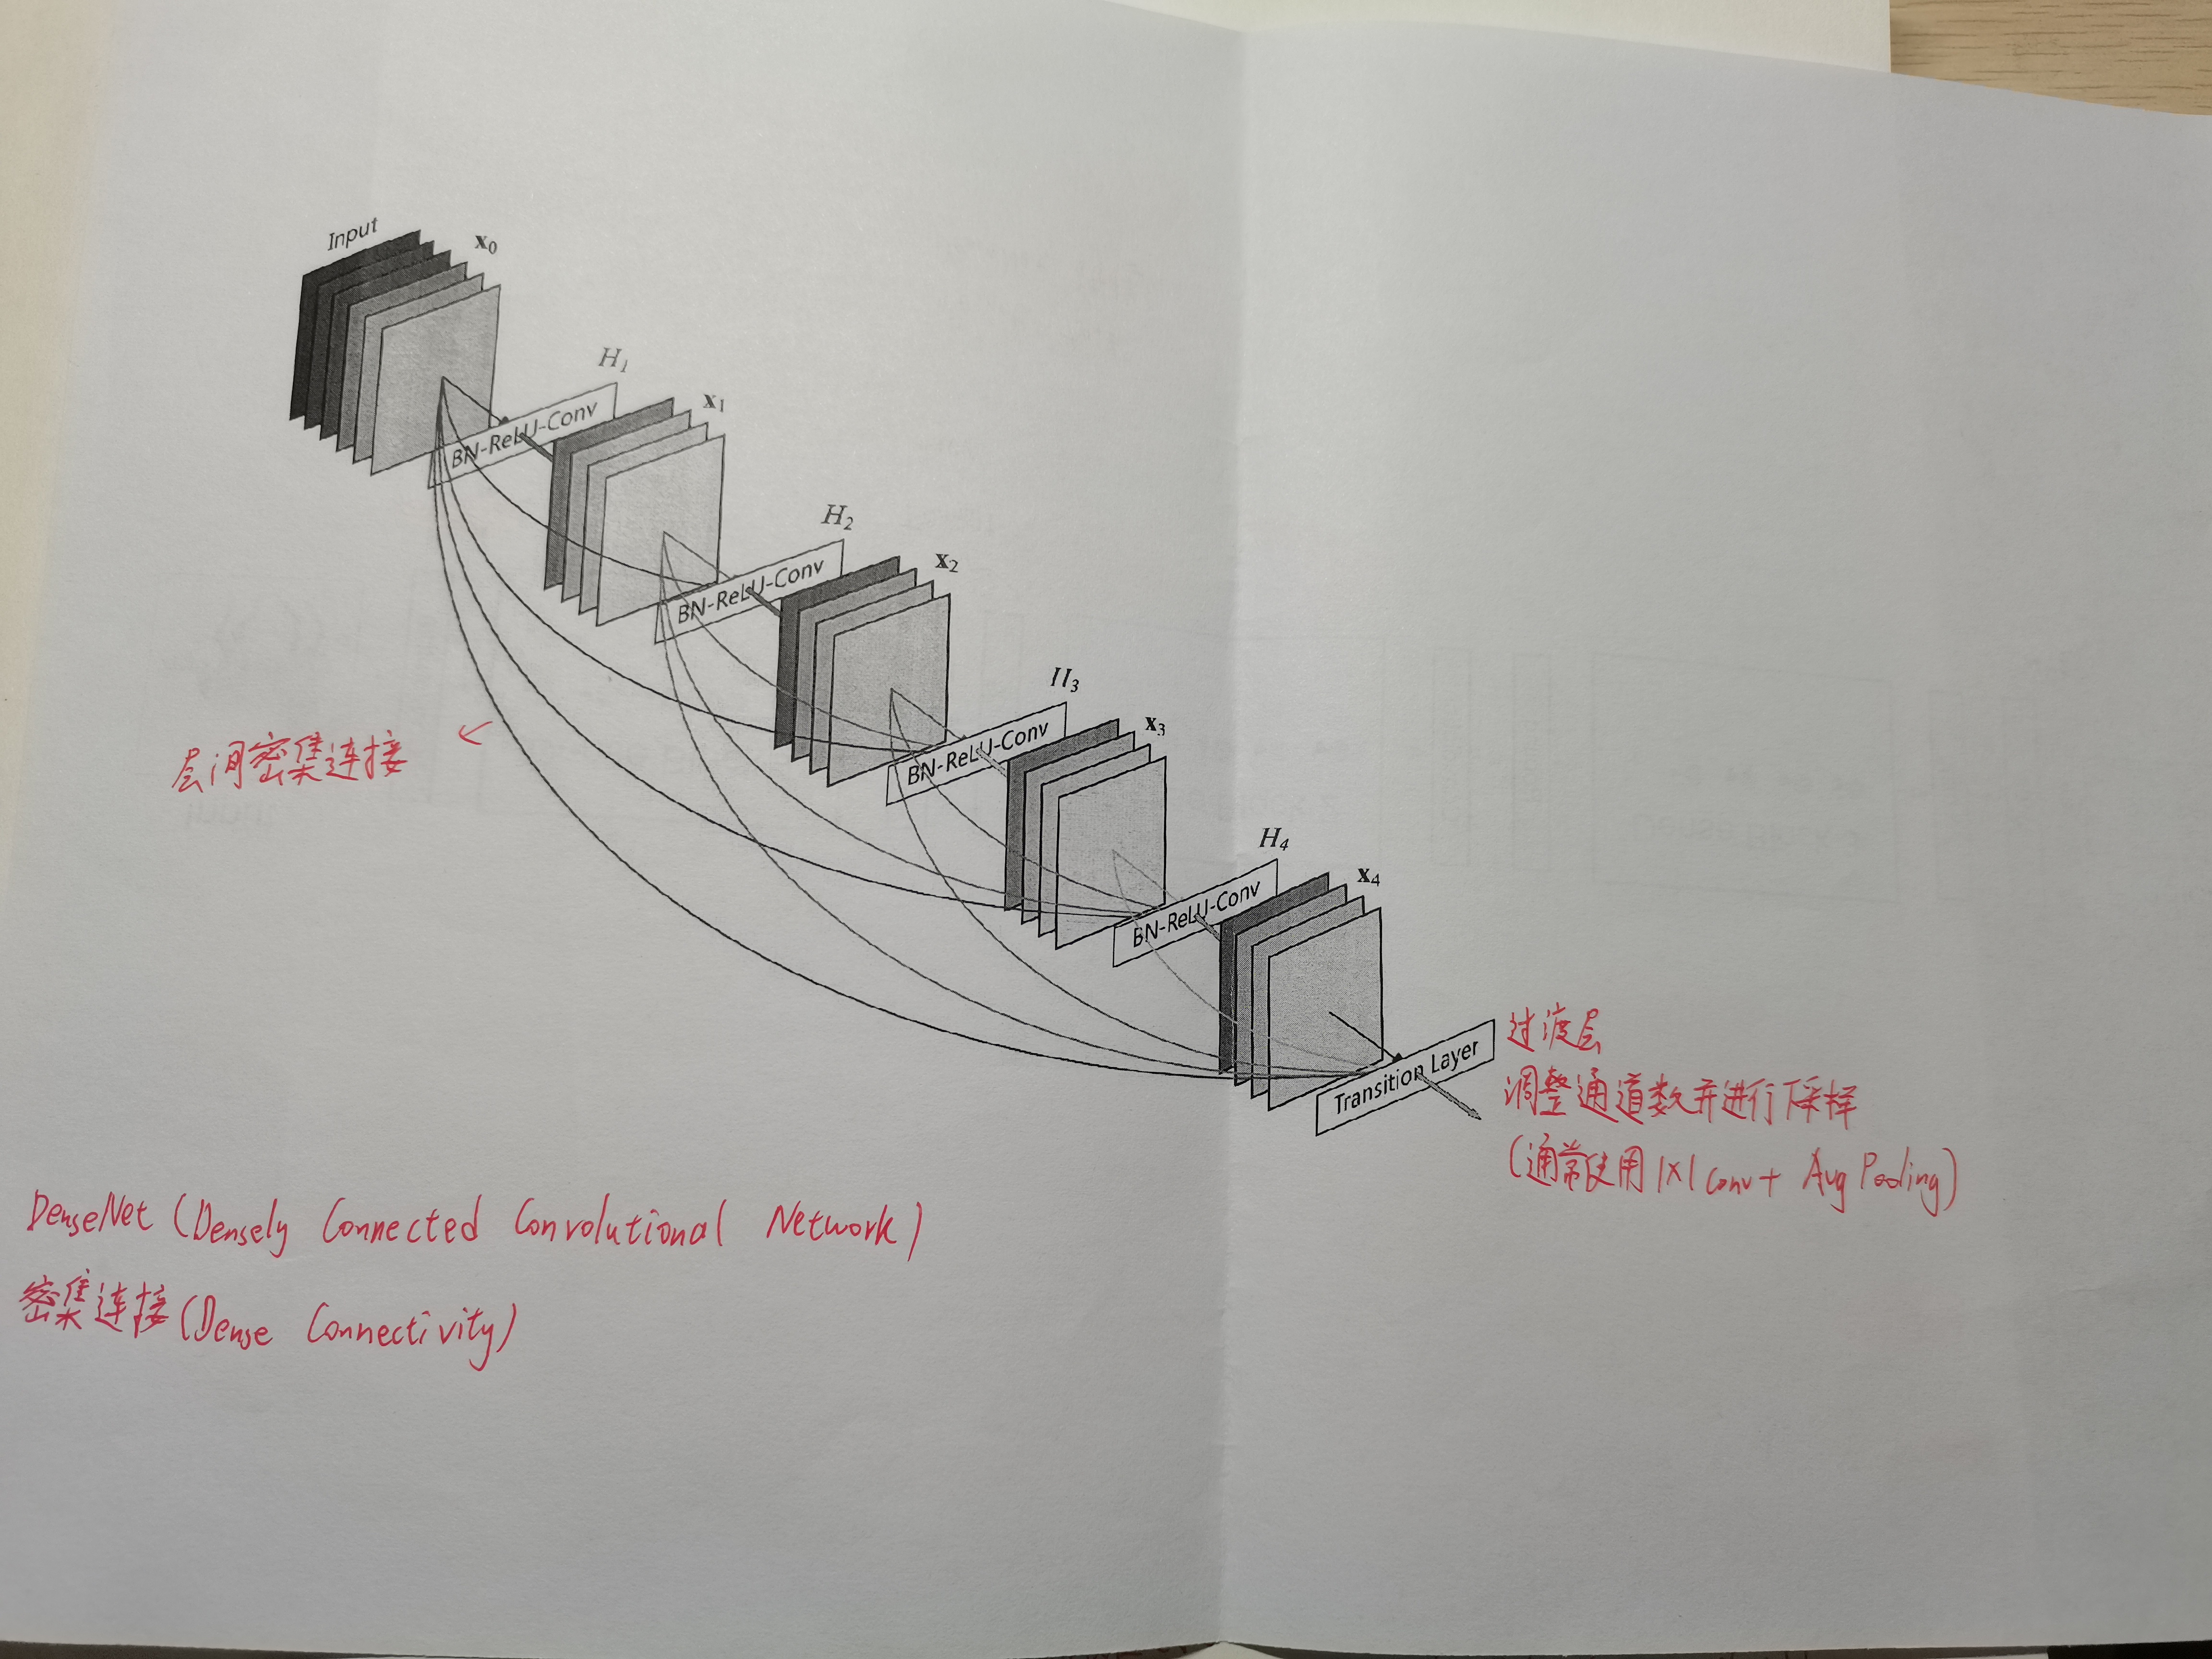 Input
x0
H1
BN-ReLU-Conv
x1
H2
BN-ReLU-Conv
x2
H3
BN-ReLU-Conv
x3
H4
BN-ReLU-Conv
x4
Transition Layer
层间密集连接
过渡层
调整通道数并进行下采样
(通常使用1X1 Conv + Avg Pooling)
DenseNet (Densely Connected Convolutional Network)
密集连接(Dense Connectivity)